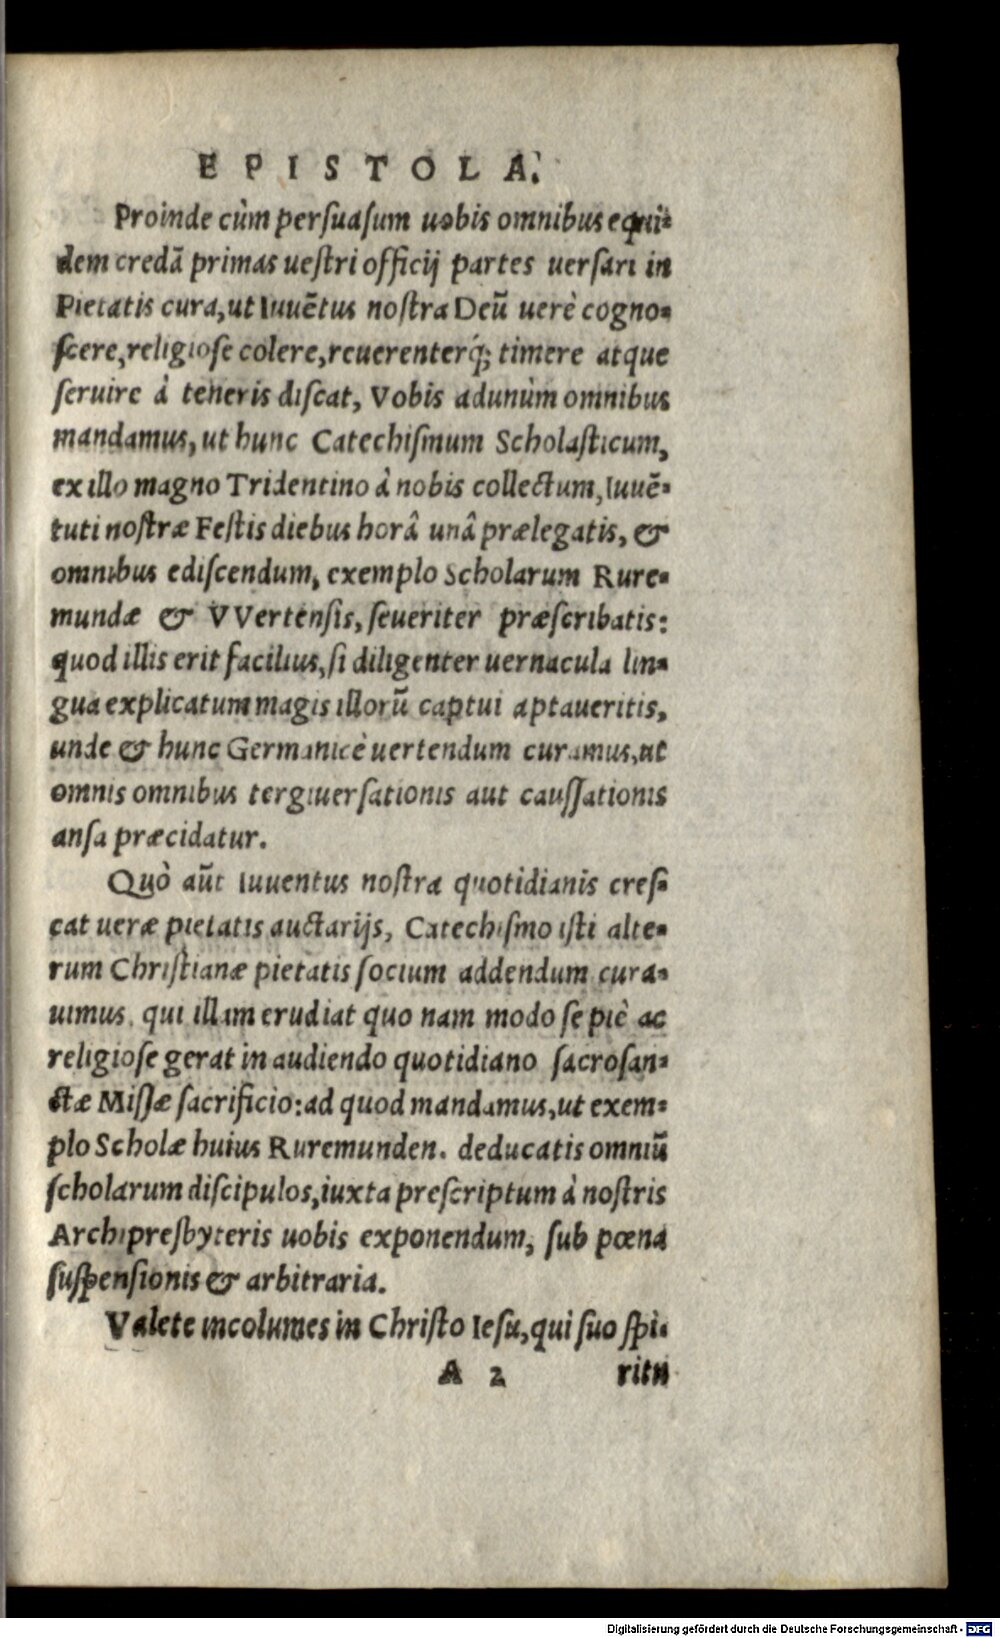 EPISTOLA.
Proinde cùm persuasum uobis omnibus equi-
dem credā primas uestri officij partes uersari in
Pietatis cura, ut Iuuētus nostra Deū uerè cogno-
scere, religiose colere, reuerenterq́; timere atque
seruire à teneris discat, Vobis adunùm omnibus
mandamus, ut hunc Catechismum Scholasticum,
ex illo magno Tridentino à nobis collectum, Iuuē-
tuti nostræ Festis diebus horâ unâ prælegatis, &
omnibus ediscendum, exemplo Scholarum Rure-
mundæ & VVertensis, seueriter præscribatis:
quod illis erit facilius, si diligenter uernacula lin-
gua explicatum magis illorū captui aptaueritis,
unde & hunc Germanicè uertendum curamus, ut
omnis omnibus tergiuersationis aut caussationis
ansa præcidatur.
Quò aūt Iuuentus nostra quotidianis cres-
cat ueræ pietatis auctarijs, Catechismo isti alte-
rum Christianæ pietatis socium addendum cura-
uimus, qui illam erudiat quo nam modo se piè ac
religiose gerat in audiendo quotidiano sacrosan-
ctæ Missæ sacrificio: ad quod mandamus, ut exem-
plo Scholæ huius Ruremunden. deducatis omniū
scholarum discipulos, iuxta prescriptum à nostris
Archipresbyteris uobis exponendum, sub pœna
suspensionis & arbitraria.
Valete incolumes in Christo Iesu, qui suo spi-
A 2 ritu
Digitalisierung gefördert durch die Deutsche Forschungsgemeinschaft - DFG